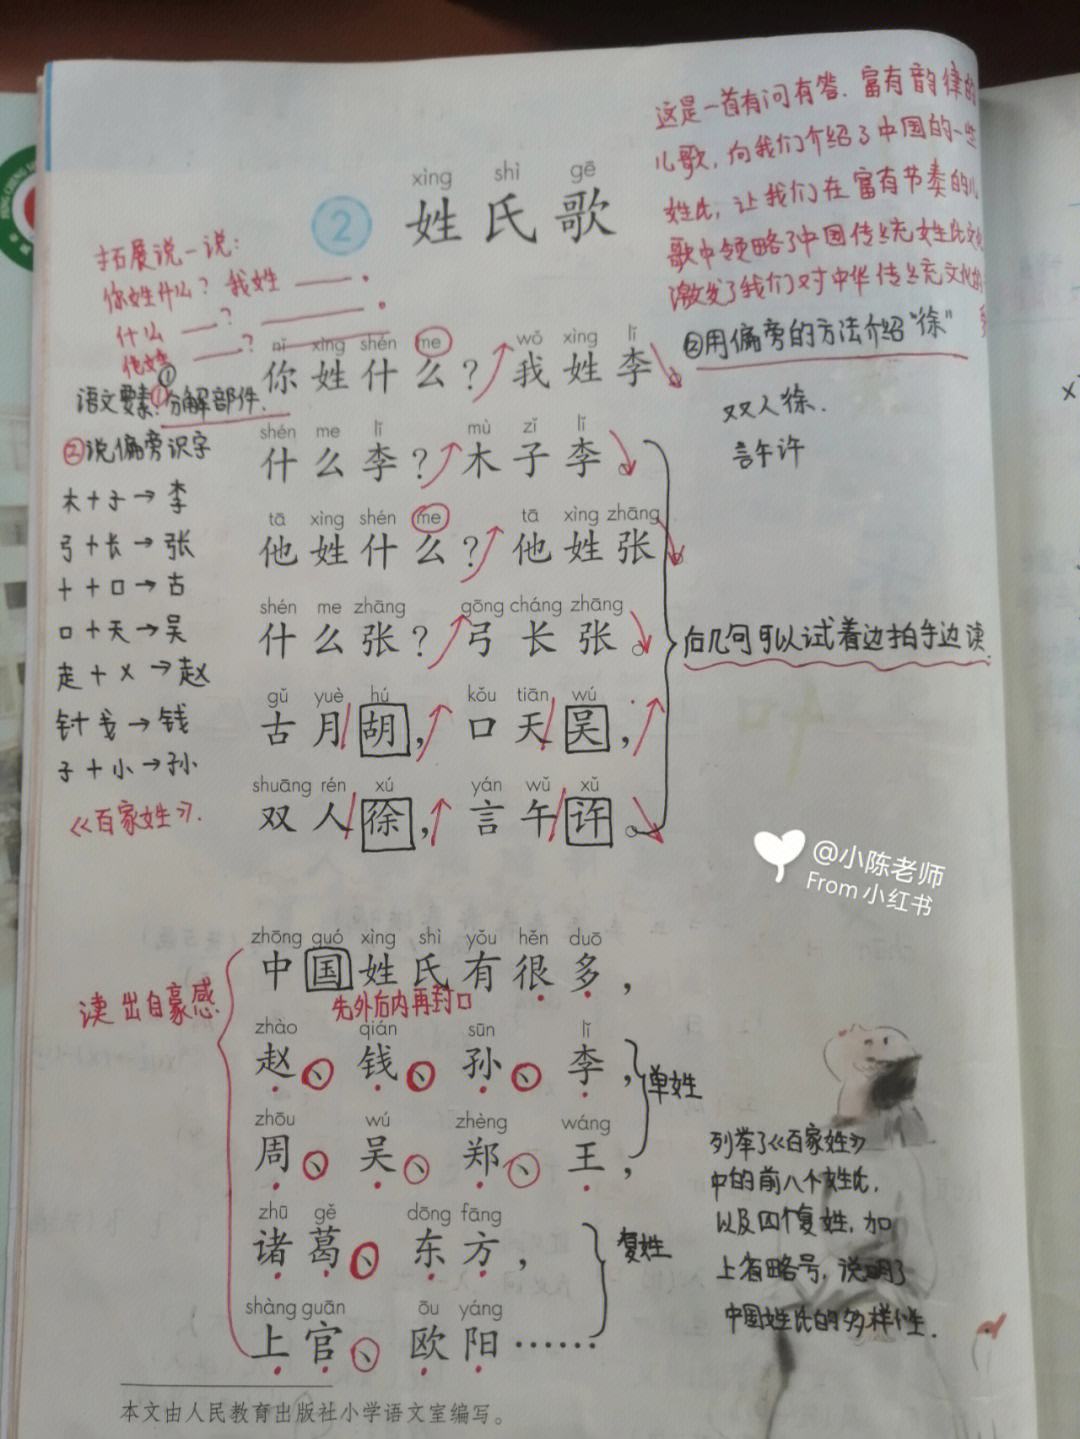 这是一首有问有答.富有韵律的
儿歌,向我们介绍了中国的一些
姓氏,让我们在富有节奏的儿
歌中领略了中国传统姓氏文化
激发了我们对中华传统文化的
xìng shì gē
② 姓氏歌
拓展说一说:
你姓什么?我姓____。
什么____?____。
他姓____?____
②用偏旁的方法介绍“徐”
双人徐.
言午许
语文要素:①分解部件.
②说偏旁识字
木+子→李
弓+长→张
十+口→古
口+天→吴
走+乂→赵
钅+戋→钱
子+小→孙
《百家姓》.
nǐ xìng shén me wǒ xìng lǐ
你姓什么?我姓李。
shén me lǐ mù zǐ lǐ
什么李?木子李。
tā xìng shén me tā xìng zhāng
他姓什么?他姓张。
shén me zhāng gōng cháng zhāng
什么张?弓长张。
gǔ yuè hú kǒu tiān wú
古月胡,口天吴,
shuāng rén xú yán wǔ xǔ
双人徐,言午许。
后几句可以试着边拍手边读.
@小陈老师
From 小红书
读出自豪感
zhōng guó xìng shì yǒu hěn duō
中国姓氏有很多,
先外后内再封口
zhào qián sūn lǐ
赵、钱、孙、李,
单姓
zhōu wú zhèng wáng
周、吴、郑、王,
zhū gě dōng fāng
诸葛、东方,
复姓
shàng guān ōu yáng
上官、欧阳……
列举了《百家姓》
中的前八个姓氏,
以及四个复姓,加
上省略号,说明了
中国姓氏的多样性.
本文由人民教育出版社小学语文室编写。